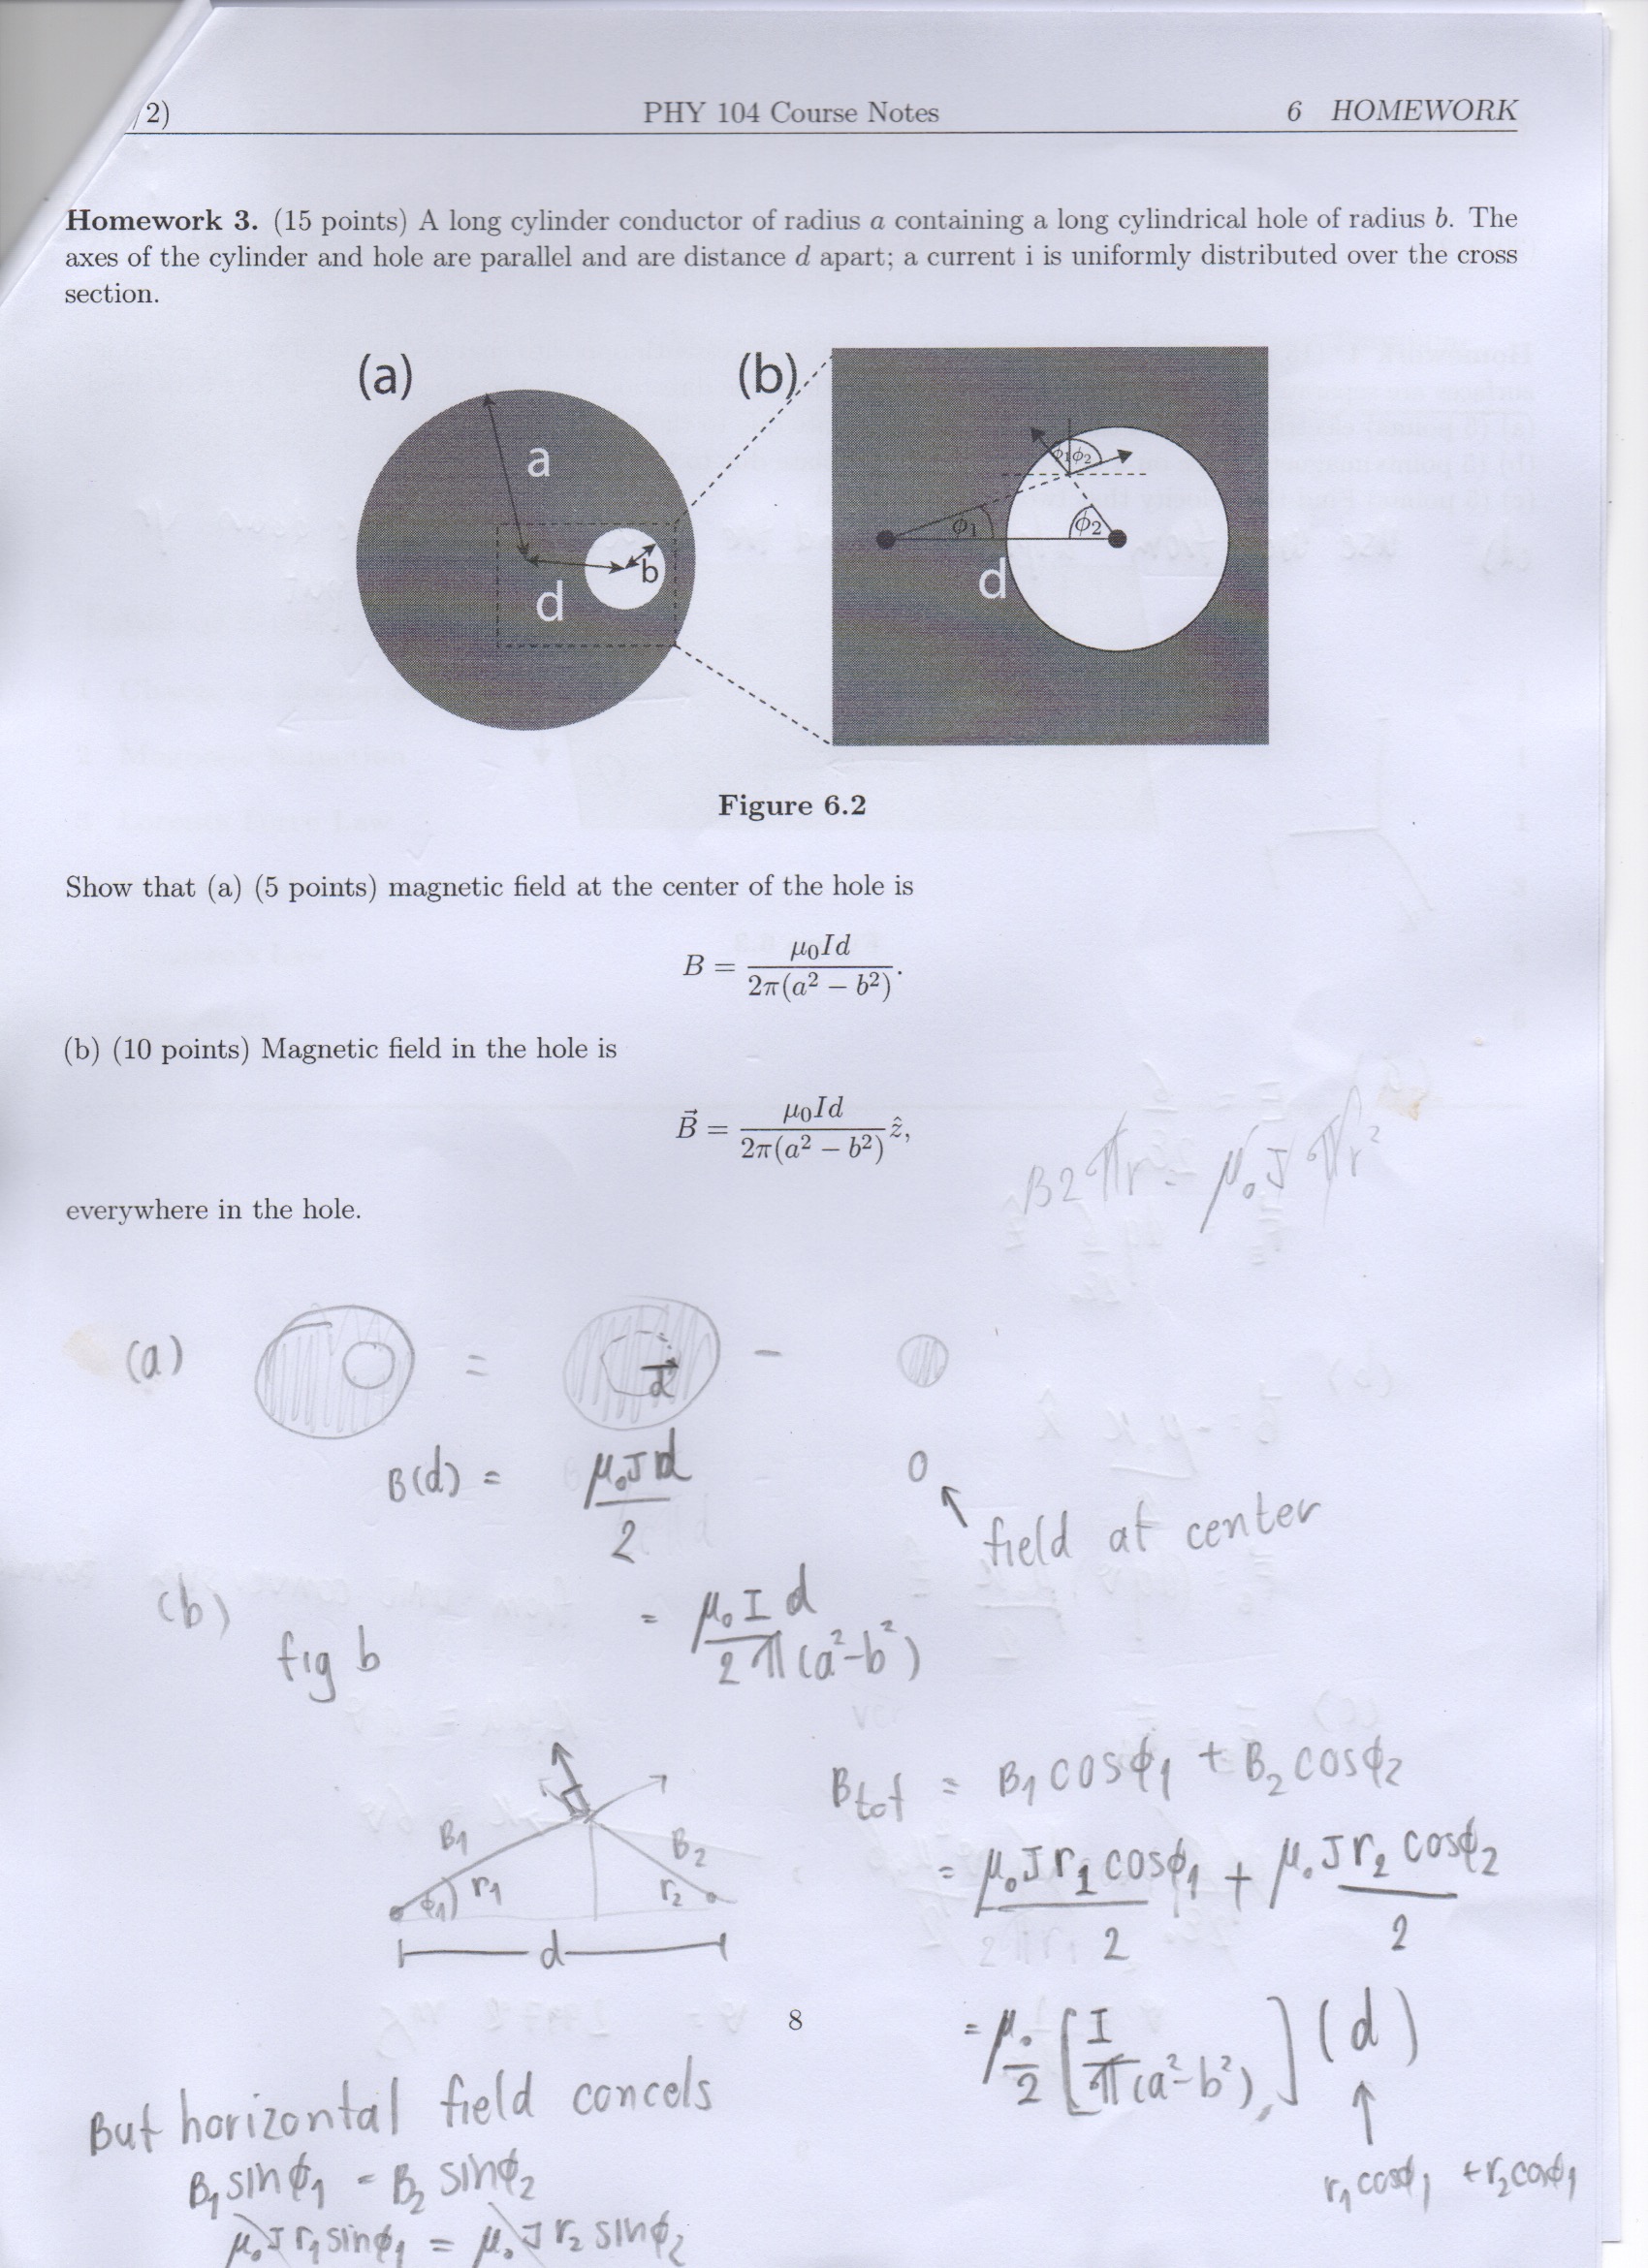 /2) PHY 104 Course Notes 6 HOMEWORK
Homework 3. (15 points) A long cylinder conductor of radius a containing a long cylindrical hole of radius b. The
axes of the cylinder and hole are parallel and are distance d apart; a current i is uniformly distributed over the cross
section.
(a) (b)
a
ϕ1 ϕ2
ϕ1 ϕ2
b
d d
Figure 6.2
Show that (a) (5 points) magnetic field at the center of the hole is
B = μ0Id / 2π(a² − b²).
(b) (10 points) Magnetic field in the hole is
B⃗ = μ0Id / 2π(a² − b²) ẑ,
B2πr = μ0J πr²
everywhere in the hole.
(a) = d⃗ −
B(d) = μ0Jd / 2 0
field at center
(b) = μ0 I d / 2π(a²-b²)
fig b
Btot = B1 cosϕ1 + B2 cosϕ2
B1 B2
= μ0Jr1 cosϕ1 / 2 + μ0Jr2 cosϕ2 / 2
ϕ1 r1 r2
d
8
= μ0/2 [I / π(a²-b²)] (d)
But horizontal field concels
r1 cosϕ1 + r2 cosϕ1
B1 sinϕ1 = B2 sinϕ2
μ0J r1 sinϕ1 = μ0J r2 sinϕ2